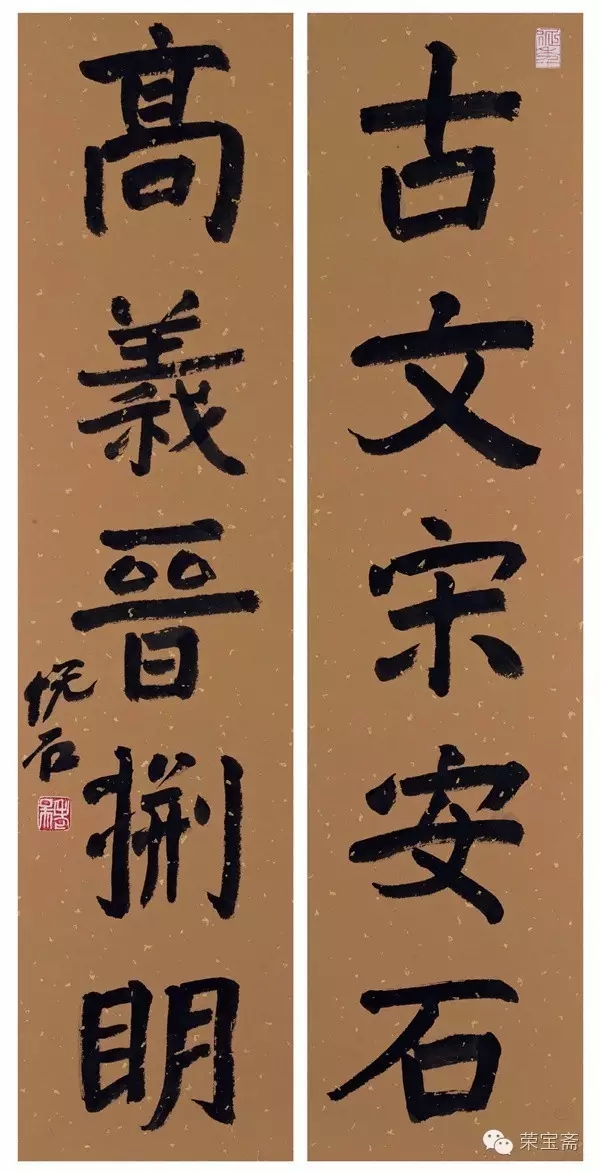 古文宋安石
高義晉淵眀
石
荣宝斋